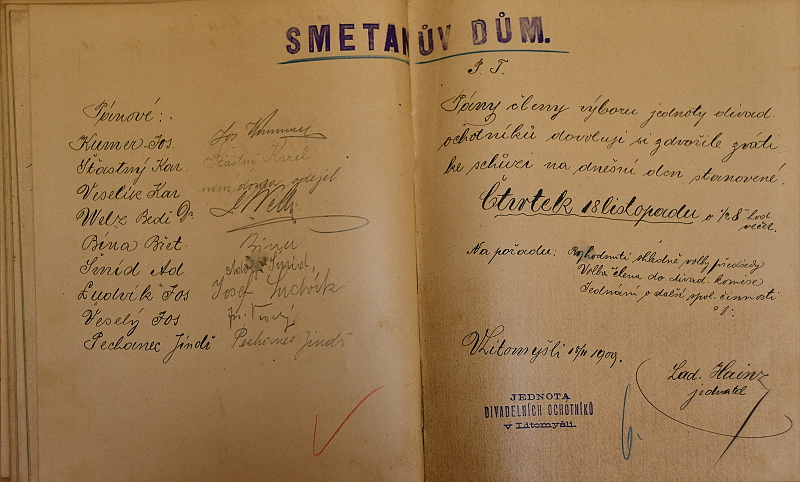 SMETANŮV DŮM.
Pánové:
Kumer Jos.
Šťastný Kar Šťastný Karel
Veselík Kar není doma odejel
Welz Bedř Dr
Bína Břet. Bína
Šmíd Ad Šmíd
Ludvík Jos Josef Ludvík
Veselý Jos
Pechanec Jindř Pechanec Jindř
P. T.
Pány členy výboru jednoty divad.
ochotníků dovoluji si zdvořile zváti
ke schůzi na dnešní den stanovené.
Čtvrtek 18 listopadu o 1/2 8 hod
večer.
Na pořadu: Rozhodnutí ohledně volby předsedy
Volba člena do divad. komise
Jednání o další spol. činnosti
V Litomyšli 18/11 1909.
Lad. Hainz
jednatel
JEDNOTA
DIVADELNÍCH OCHOTNÍKŮ
v Litomyšli.